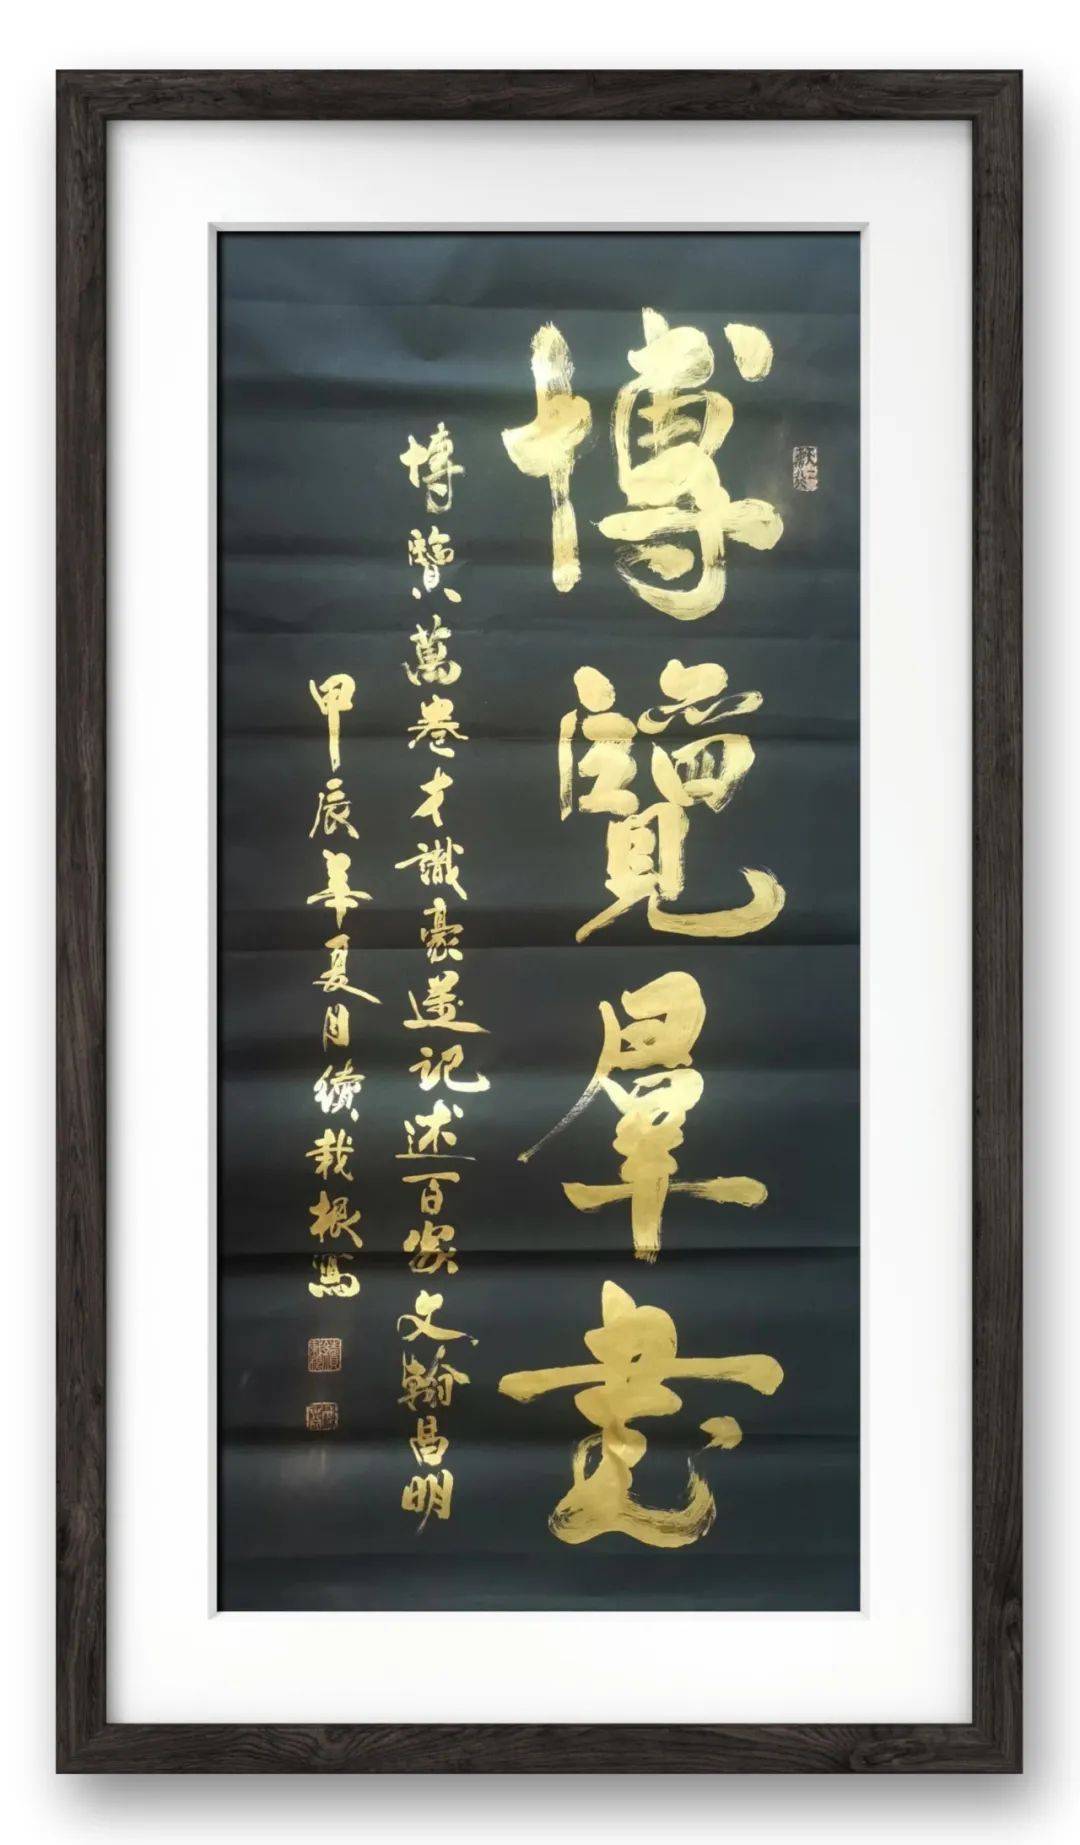 博覽群書
博覽萬卷才識豪邁記述百家文翰昌明
甲辰年夏月續栽根寫